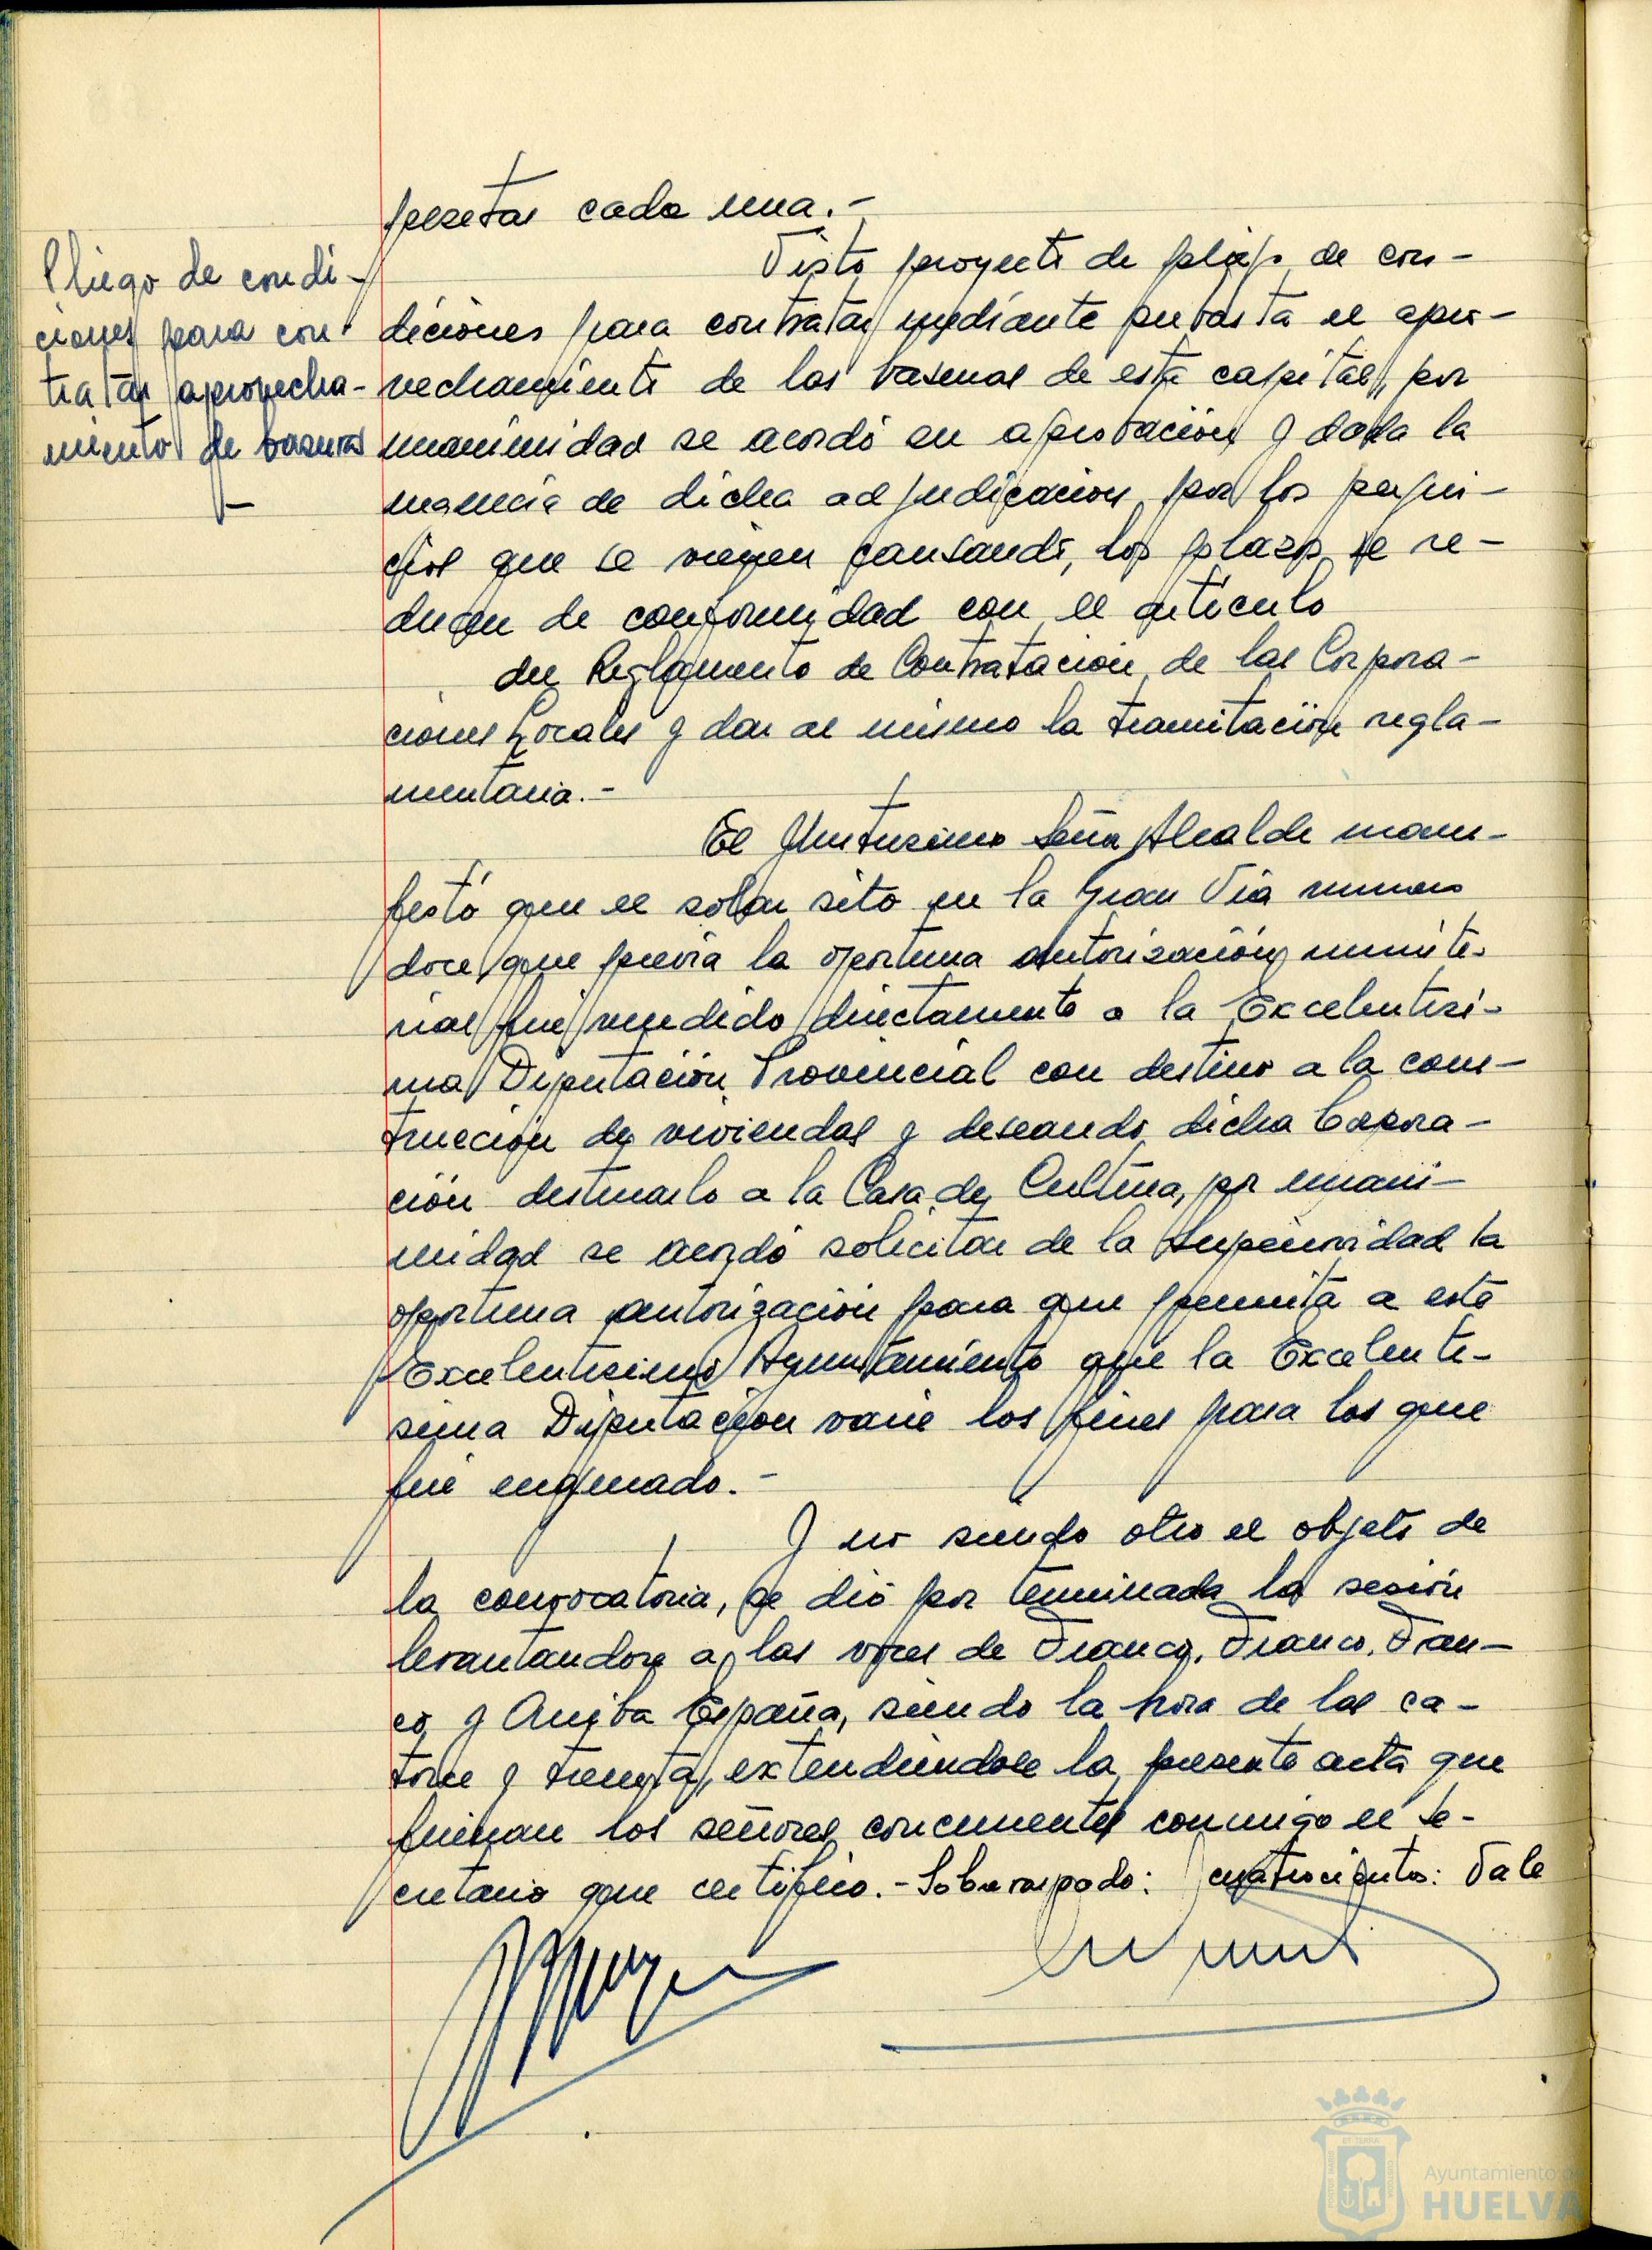 pesetas cada una.-
Pliego de condi-
ciones para con-
tratar aprovecha-
miento de basuras
Visto proyecto de pliego de con-
diciones para contratar mediante subasta el apro-
vechamiento de las basuras de esta capital, por
unanimidad se acordó su aprobación y dada la
urgencia de dicha adjudicacion, por los perjui-
cios que se vienen causando, los plazos se re-
ducen de conformidad con el artículo
del Reglamento de Contratación de las Corpora-
ciones Locales y dar al mismo la tramitación regla-
mentaria.-
El Ilustrisimo Señor Alcalde mani-
festó que el solar sito en la Gran Via numero
doce, que previa la oportuna autorización ministe-
rial fue vendido directamente a la Excelentisi-
ma Diputación Provincial con destino a la cons-
trucción de viviendas y deseando dicha Corpora-
ción destinarlo a la Casa de Cultura, por unani-
midad se acordó solicitar de la Superioridad la
oportuna autorización para que permita a este
Excelentisimo Ayuntamiento que la Excelenti-
sima Diputación varie los fines para los que
fué enagenado.-
Y no siendo otro el objeto de
la convocatoria, se dió por terminada la sesión
levantandose a las voces de Franco, Franco, Fran-
co y Arriba España, siendo la hora de las ca-
torce y treinta, extendiendose la presente acta que
firman los señores concurrentes conmigo el Se-
cretario que certifico.- Sobreraspado: cuatrocientos: Vale
Ayuntamiento de
HUELVA